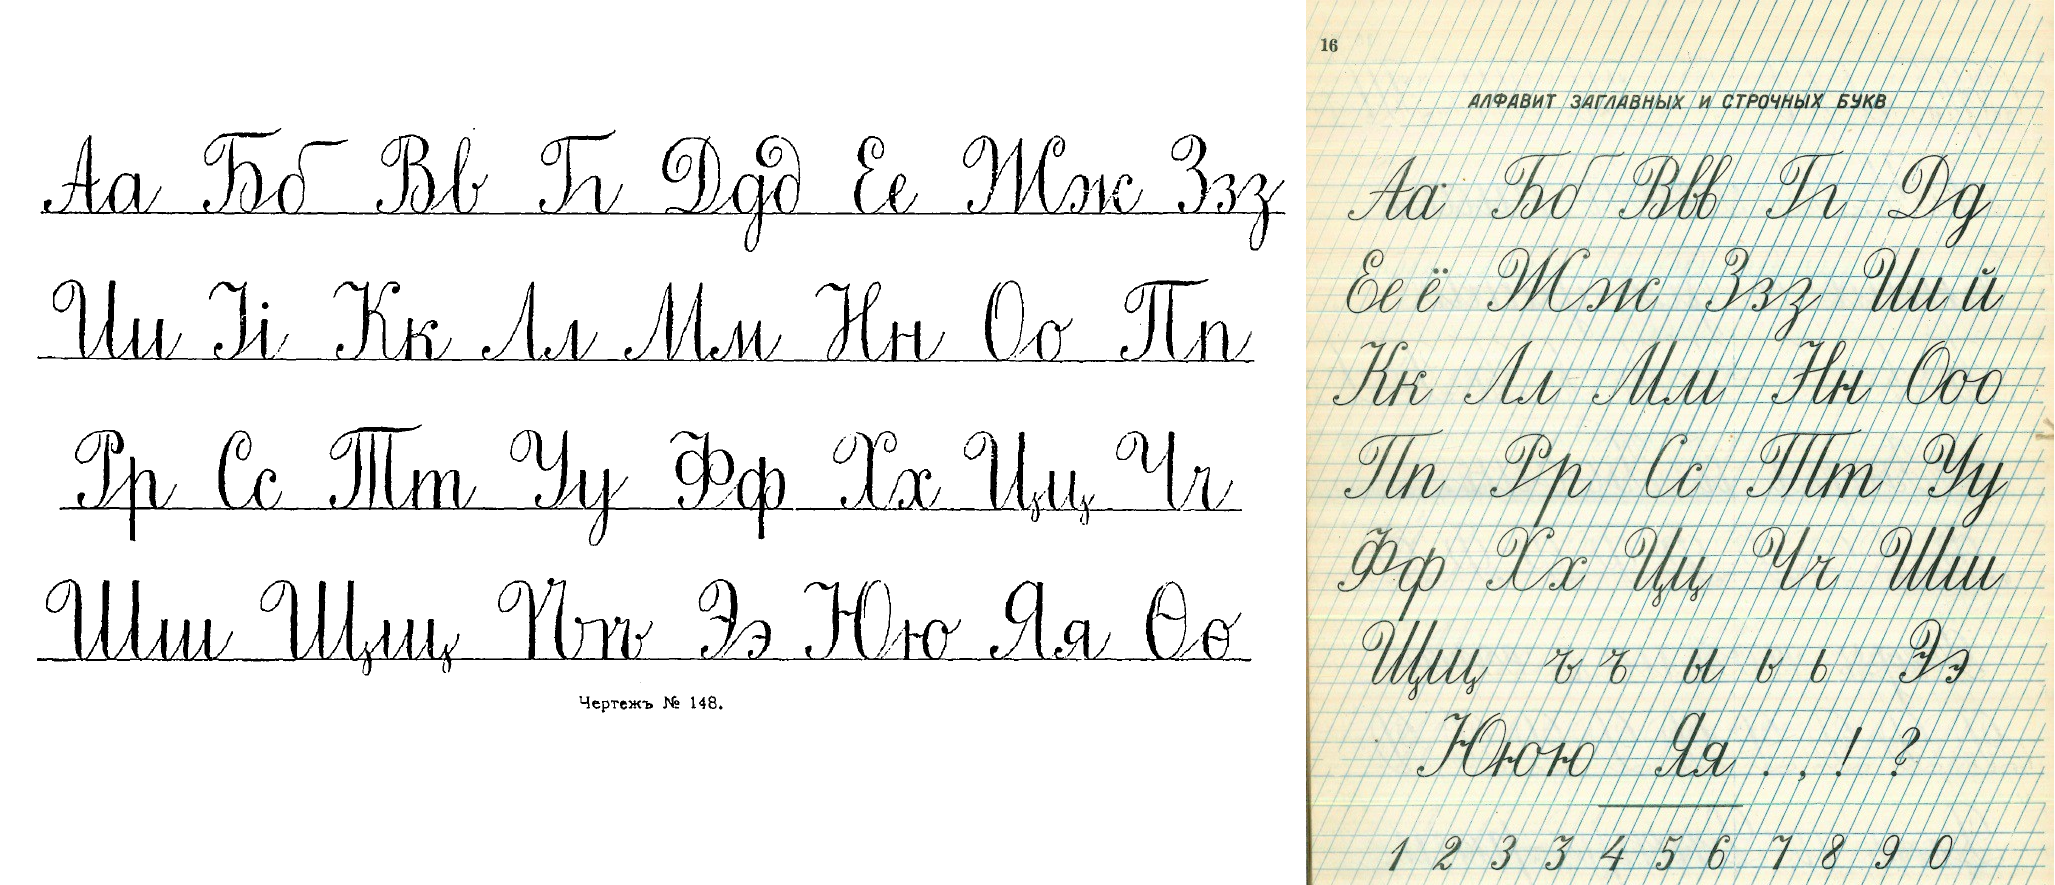 Аа Бб Вв Гг Ддд Ее Жж Ззз
Ии Іі Кк Лл Мм Нн Оо Пп
Рр Сс Тт Уу Фф Хх Цц Чч
Шш Щщ Ѣѣ Ээ Юю Яя Ѳѳ
Чертежъ № 148.
16
АЛФАВИТ ЗАГЛАВНЫХ И СТРОЧНЫХ БУКВ
Аа Бб Ввв Гг Дд
Ее ё Жж Ззз Ии й
Кк Лл Мм Нн Ооо
Пп Рр Сс Тт Уу
Фф Хх Цц Чч Шш
Щщ ъ ъ ы ь ь Ээ
Ююю Яя . , ! ?
1 2 3 3 4 5 6 7 8 9 0